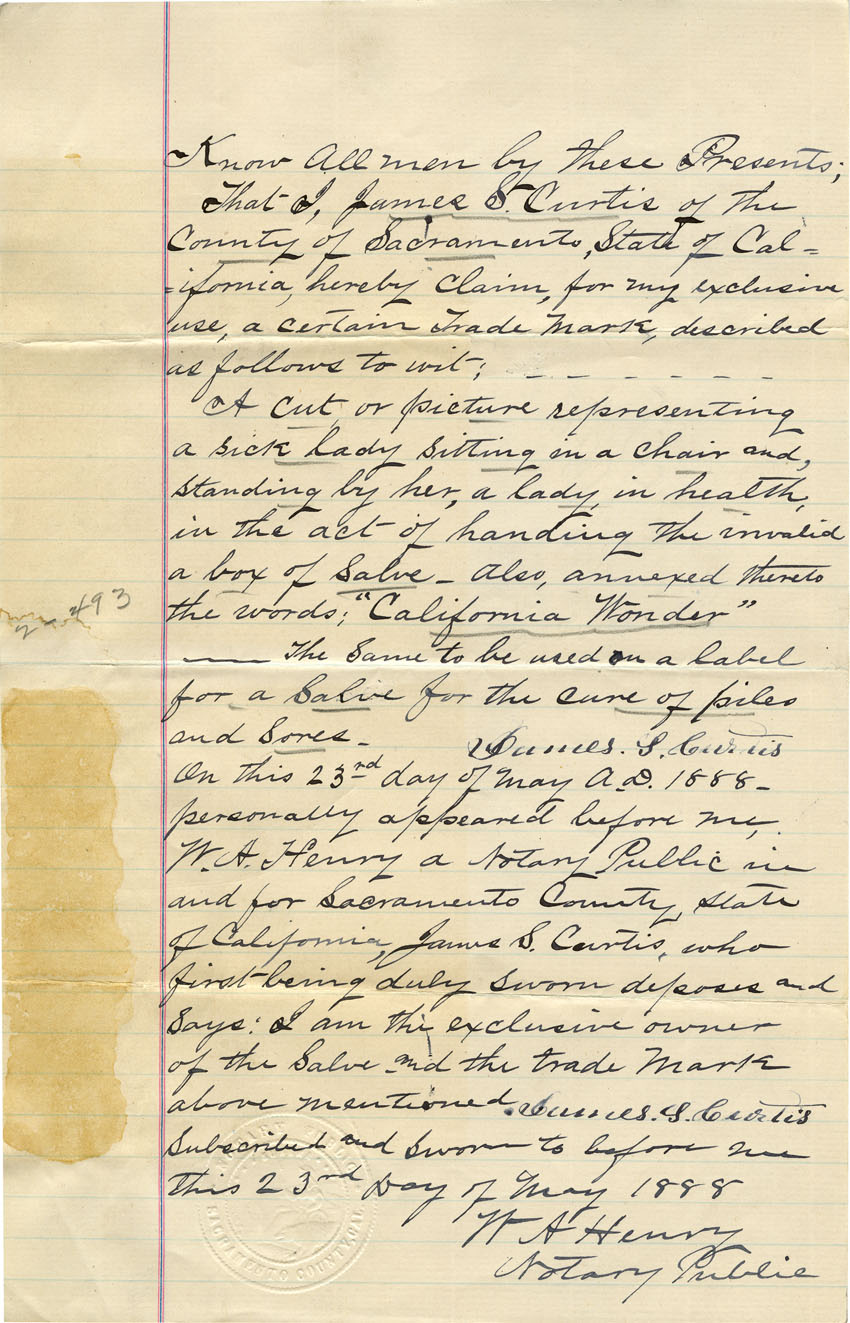 Know All men by these Presents;
That I, James S. Curtis of the
County of Sacramento, State of Cal=
=ifornia, hereby claim, for my exclusive
use, a certain Trade Mark, described
as follows to wit; _ _ _ _ _ _ _
A cut, or picture representing
a sick lady sitting in a chair and,
standing by her, a lady, in health,
in the act of handing the invalid
a box of Salve - Also, annexed thereto
2-493
the words; "California Wonder"
—— The Same to be used on a label
for a Salve for the cure of piles
and Sores - James. S. Curtis
On this 23rd day of May A.D. 1888-
personally appeared before me,
W. A. Henry a Notary Public in
and for Sacramento County, State
of California, James S. Curtis, who
first being duly sworn deposes and
Says: I am the exclusive owner
of the Salve and the trade Mark
above mentioned. James. S. Curtis
Subscribed and Sworn to before me
this 23rd Day of May 1888
W A Henry
Notary Public
SACRAMENTO COUNTY, CAL.